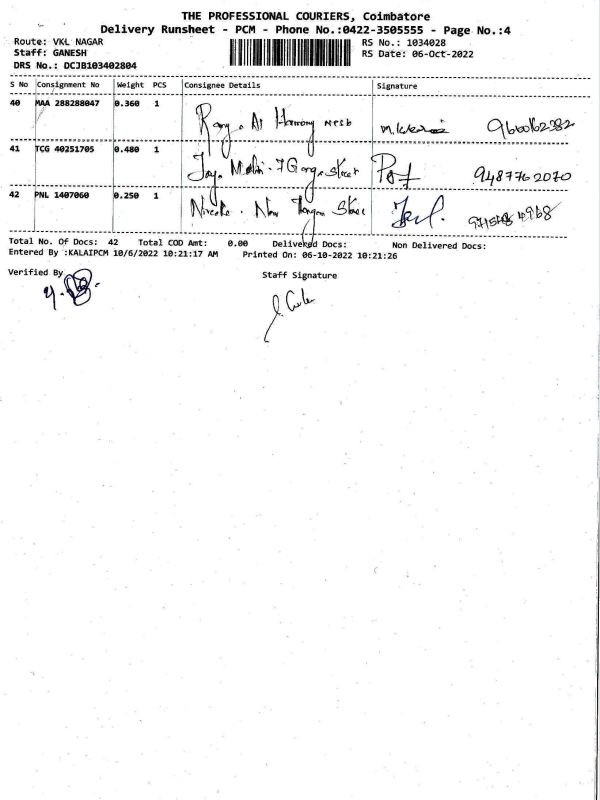 THE PROFESSIONAL COURIERS, Coimbatore
Delivery Runsheet - PCM - Phone No.:0422-3505555 - Page No.:4
Route: VKL NAGAR RS No.: 1034028
Staff: GANESH RS Date: 06-Oct-2022
DRS No.: DCJB103402804
S No Consignment No Weight PCS Consignee Details Signature
40 MAA 288288047 0.360 1
41 TCG 40251705 0.480 1 9487762070
42 PNL 1407060 0.250 1
Total No. Of Docs: 42 Total COD Amt: 0.00 Delivered Docs: Non Delivered Docs:
Entered By :KALAIPCM 10/6/2022 10:21:17 AM Printed On: 06-10-2022 10:21:26
Verified By Staff Signature